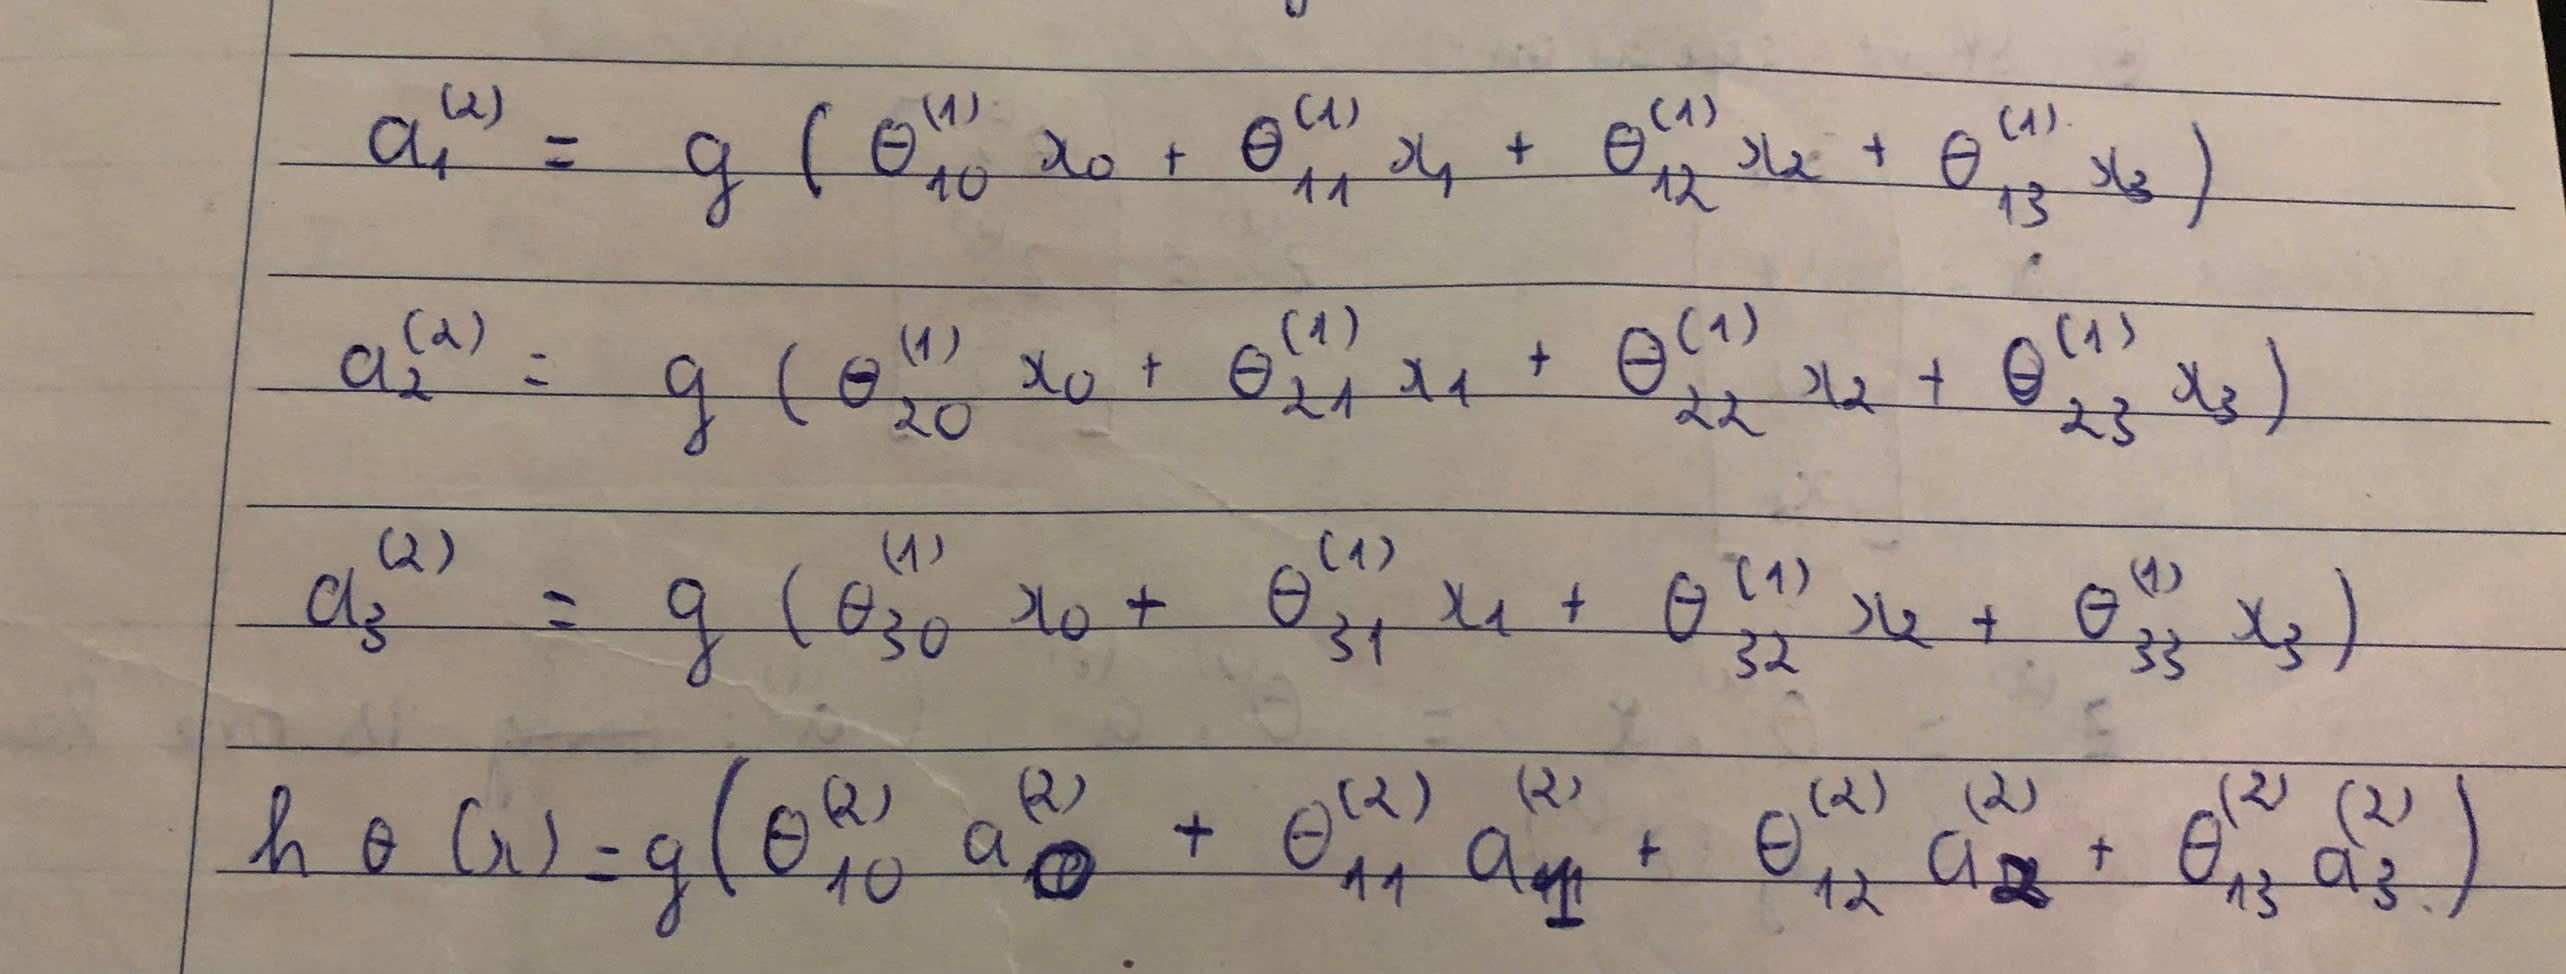 a₁⁽²⁾ = g (θ₁₀⁽¹⁾ x₀ + θ₁₁⁽¹⁾ x₁ + θ₁₂⁽¹⁾ x₂ + θ₁₃⁽¹⁾ x₃)
a₂⁽²⁾ = g (θ₂₀⁽¹⁾ x₀ + θ₂₁⁽¹⁾ x₁ + θ₂₂⁽¹⁾ x₂ + θ₂₃⁽¹⁾ x₃)
a₃⁽²⁾ = g (θ₃₀⁽¹⁾ x₀ + θ₃₁⁽¹⁾ x₁ + θ₃₂⁽¹⁾ x₂ + θ₃₃⁽¹⁾ x₃)
h θ (x) = g (θ₁₀⁽²⁾ a₀⁽²⁾ + θ₁₁⁽²⁾ a₁⁽²⁾ + θ₁₂⁽²⁾ a₂⁽²⁾ + θ₁₃⁽²⁾ a₃⁽²⁾)